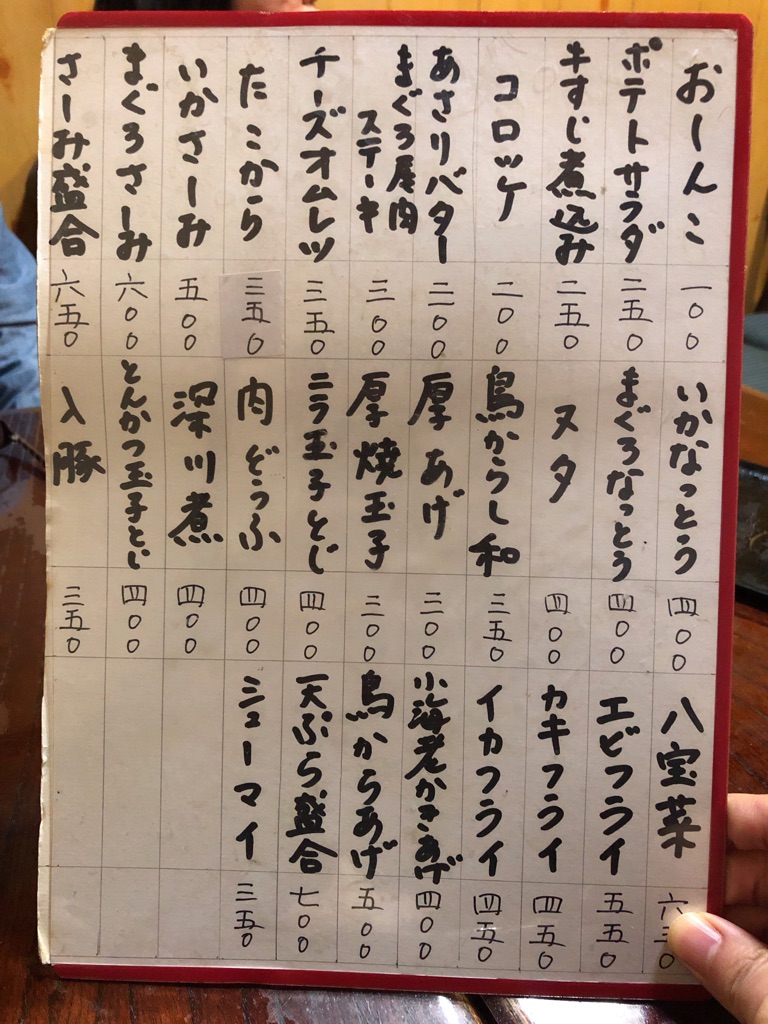 おしんこ 一〇〇
ポテトサラダ 二五〇
牛すじ煮込み 二五〇
コロッケ 二〇〇
あさりバター 二〇〇
まぐろ尾肉ステーキ 三〇〇
チーズオムレツ 三五〇
たこから 三五〇
いかさしみ 五〇〇
まぐろさしみ 六〇〇
さしみ盛合 六五〇
いかなっとう 四〇〇
まぐろなっとう 四〇〇
ヌタ 四〇〇
鳥からし和 三五〇
厚あげ 三〇〇
厚焼玉子 三〇〇
ニラ玉子とじ 四〇〇
肉どうふ 四〇〇
深川煮 四〇〇
とんかつ玉子とじ 四〇〇
入豚 三五〇
八宝菜
エビフライ 五五〇
カキフライ 四五〇
イカフライ 四五〇
小海老かきあげ 四〇〇
鳥からあげ 五〇〇
天ぷら盛合 七〇〇
シューマイ 三五〇